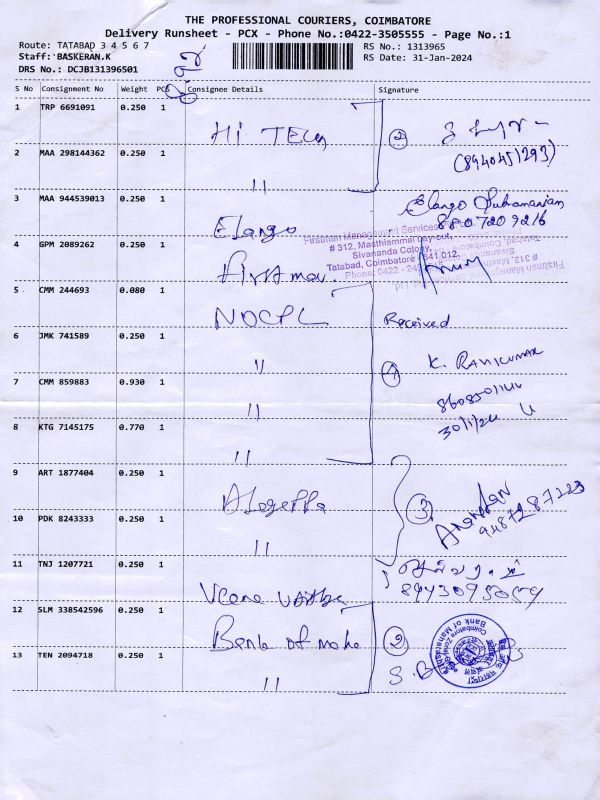 THE PROFESSIONAL COURIERS, COIMBATORE
Delivery Runsheet - PCX - Phone No.:0422-3505555 - Page No.:1
Route: TATABAD 3 4 5 6 7
RS No.: 1313965
Staff: BASKERAN.K
RS Date: 31-Jan-2024
DRS No.: DCJB131396501
S No Consignment No Weight PCS Consignee Details Signature
1 TRP 6691091 0.250 1
HI TECH 2
(8940451293)
2 MAA 298144362 0.250 1
"
3 MAA 944539013 0.250 1
Elango Elango Subramaniam
8807209216
4 GPM 2089262 0.250 1
Firstman Management Services
# 312, Masthiammal Layout,
Sivananda Colony,
Tatabad, Coimbatore - 641 012.
Firstman
5 CMM 244693 0.080 1
NOCPL Received
6 JMK 741589 0.250 1
" 4 K. RAVIKUMAR
7 CMM 859883 0.930 1
"
30/1/24
8 KTG 7145175 0.770 1
"
9 ART 1877404 0.250 1
3 Anandan
9487287223
10 PDK 8243333 0.250 1
"
11 TNJ 1207721 0.250 1
12 SLM 338542596 0.250 1
Bank of maha 2
Bank of Maharashtra
13 TEN 2094718 0.250 1
"